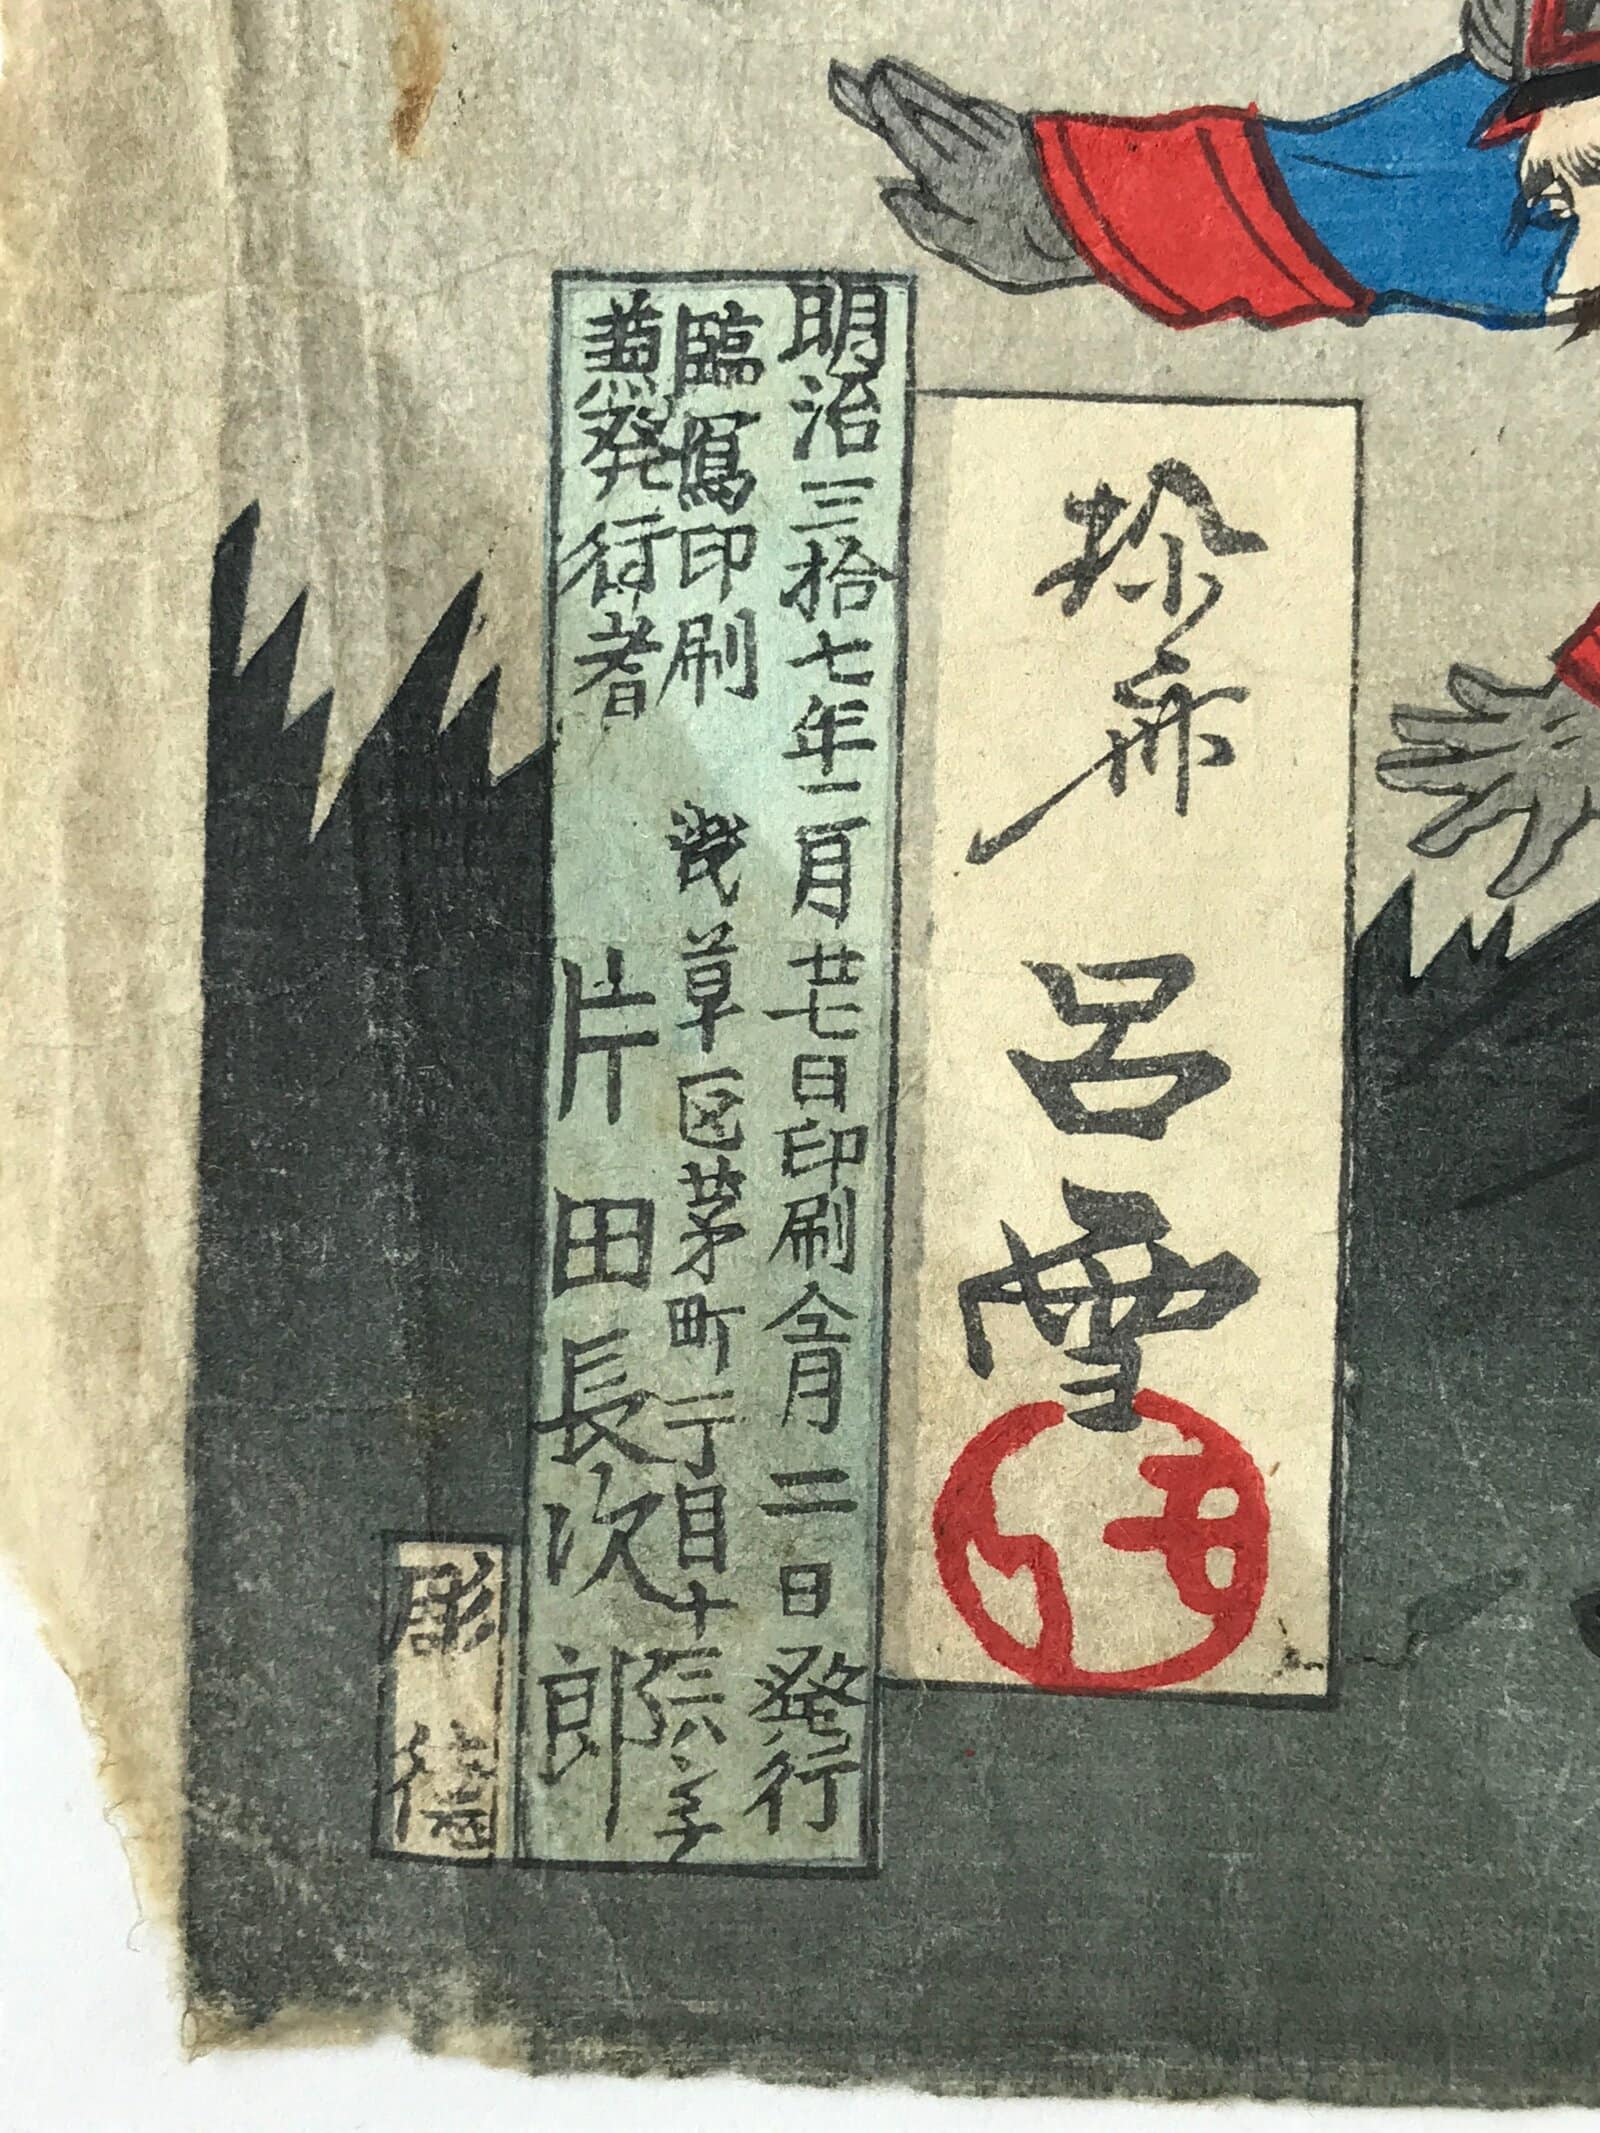 呂雪
明治三拾七年二月廿七日印刷仝月二日発行
臨寫印刷 浅草区茅町二丁目十
兼発行者 片田長次郎
彫